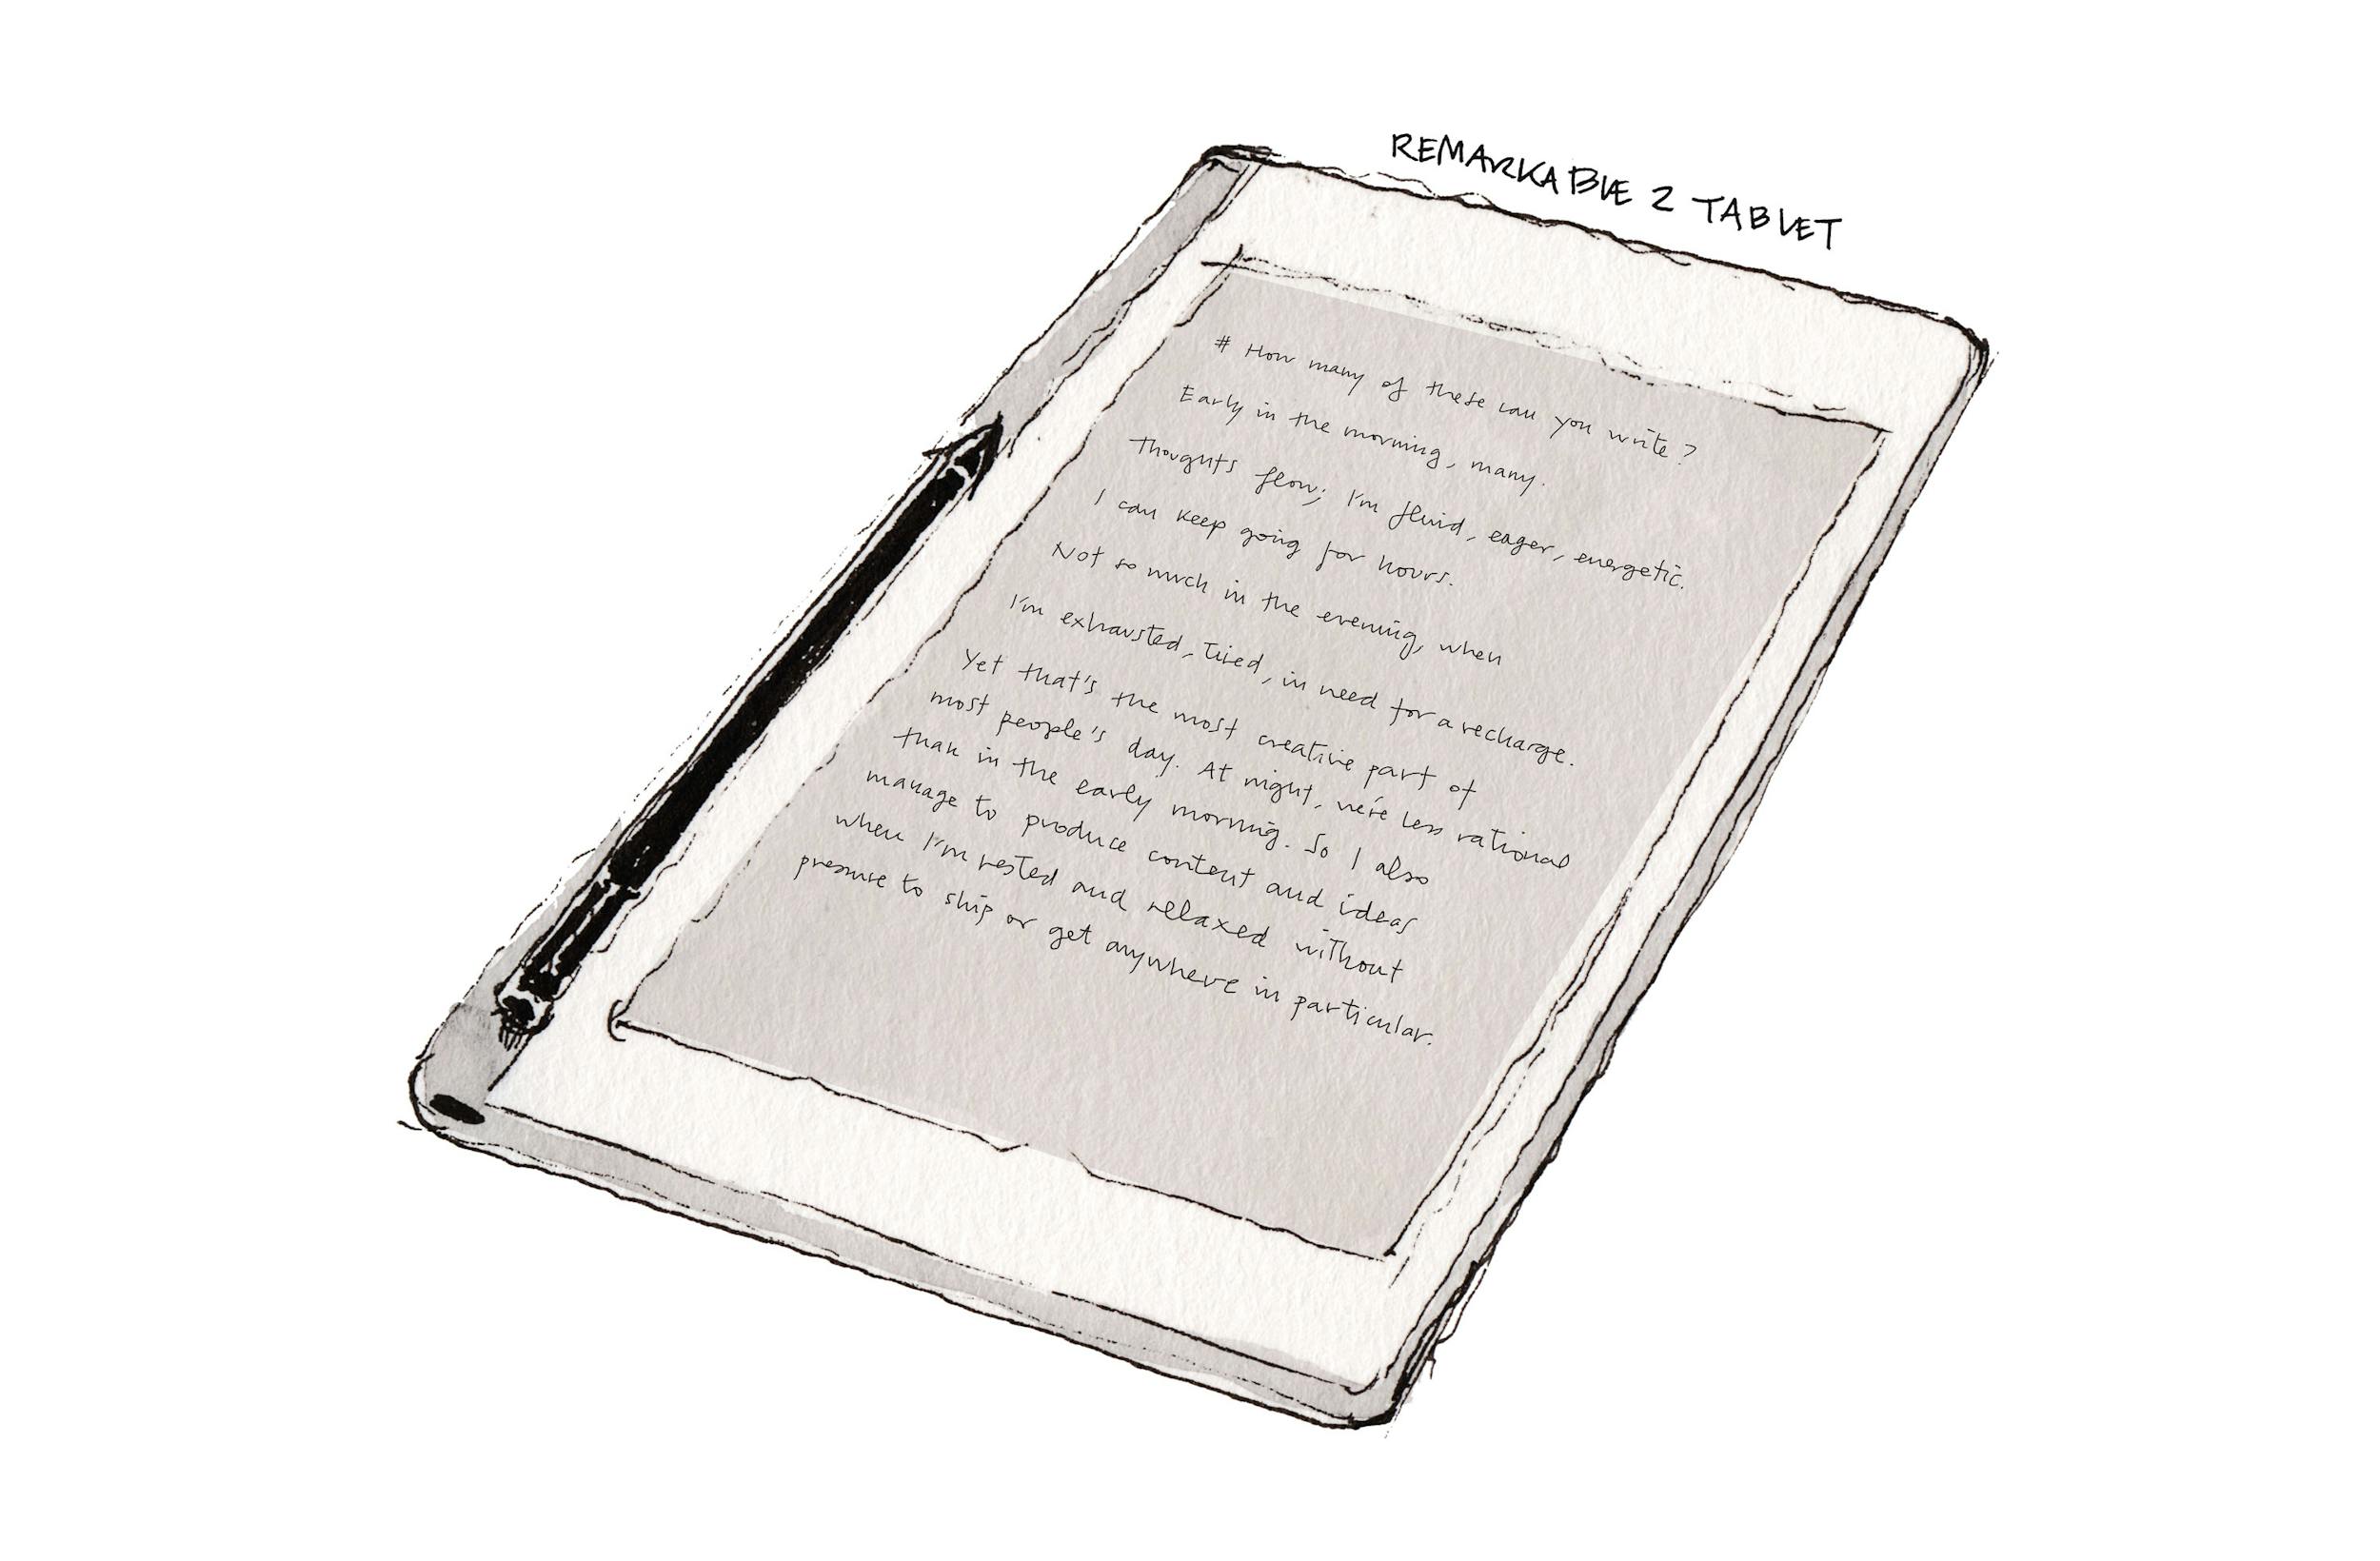 REMARKABLE 2 TABLET
# How many of these can you write?
Early in the morning, many.
Thoughts flow; I'm fluid, eager, energetic.
I can keep going for hours.
Not so much in the evening, when
I'm exhausted, tired, in need for a recharge.
Yet that's the most creative part of
most people's day. At night, we're less rational
than in the early morning. So I also
manage to produce content and ideas
when I'm rested and relaxed without
pressure to ship or get anywhere in particular.